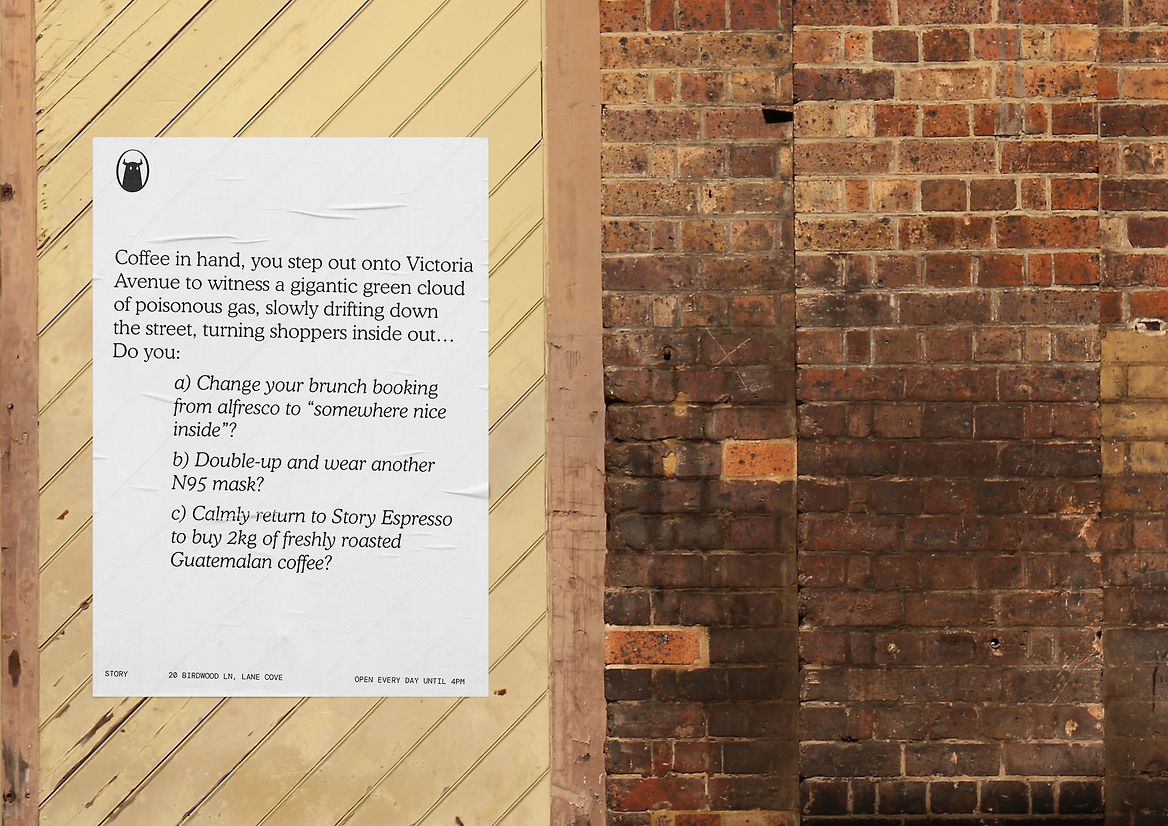 Coffee in hand, you step out onto Victoria
Avenue to witness a gigantic green cloud
of poisonous gas, slowly drifting down
the street, turning shoppers inside out…
Do you:
a) Change your brunch booking
from alfresco to “somewhere nice
inside”?
b) Double-up and wear another
N95 mask?
c) Calmly return to Story Espresso
to buy 2kg of freshly roasted
Guatemalan coffee?
STORY
20 BIRDWOOD LN, LANE COVE
OPEN EVERY DAY UNTIL 4PM